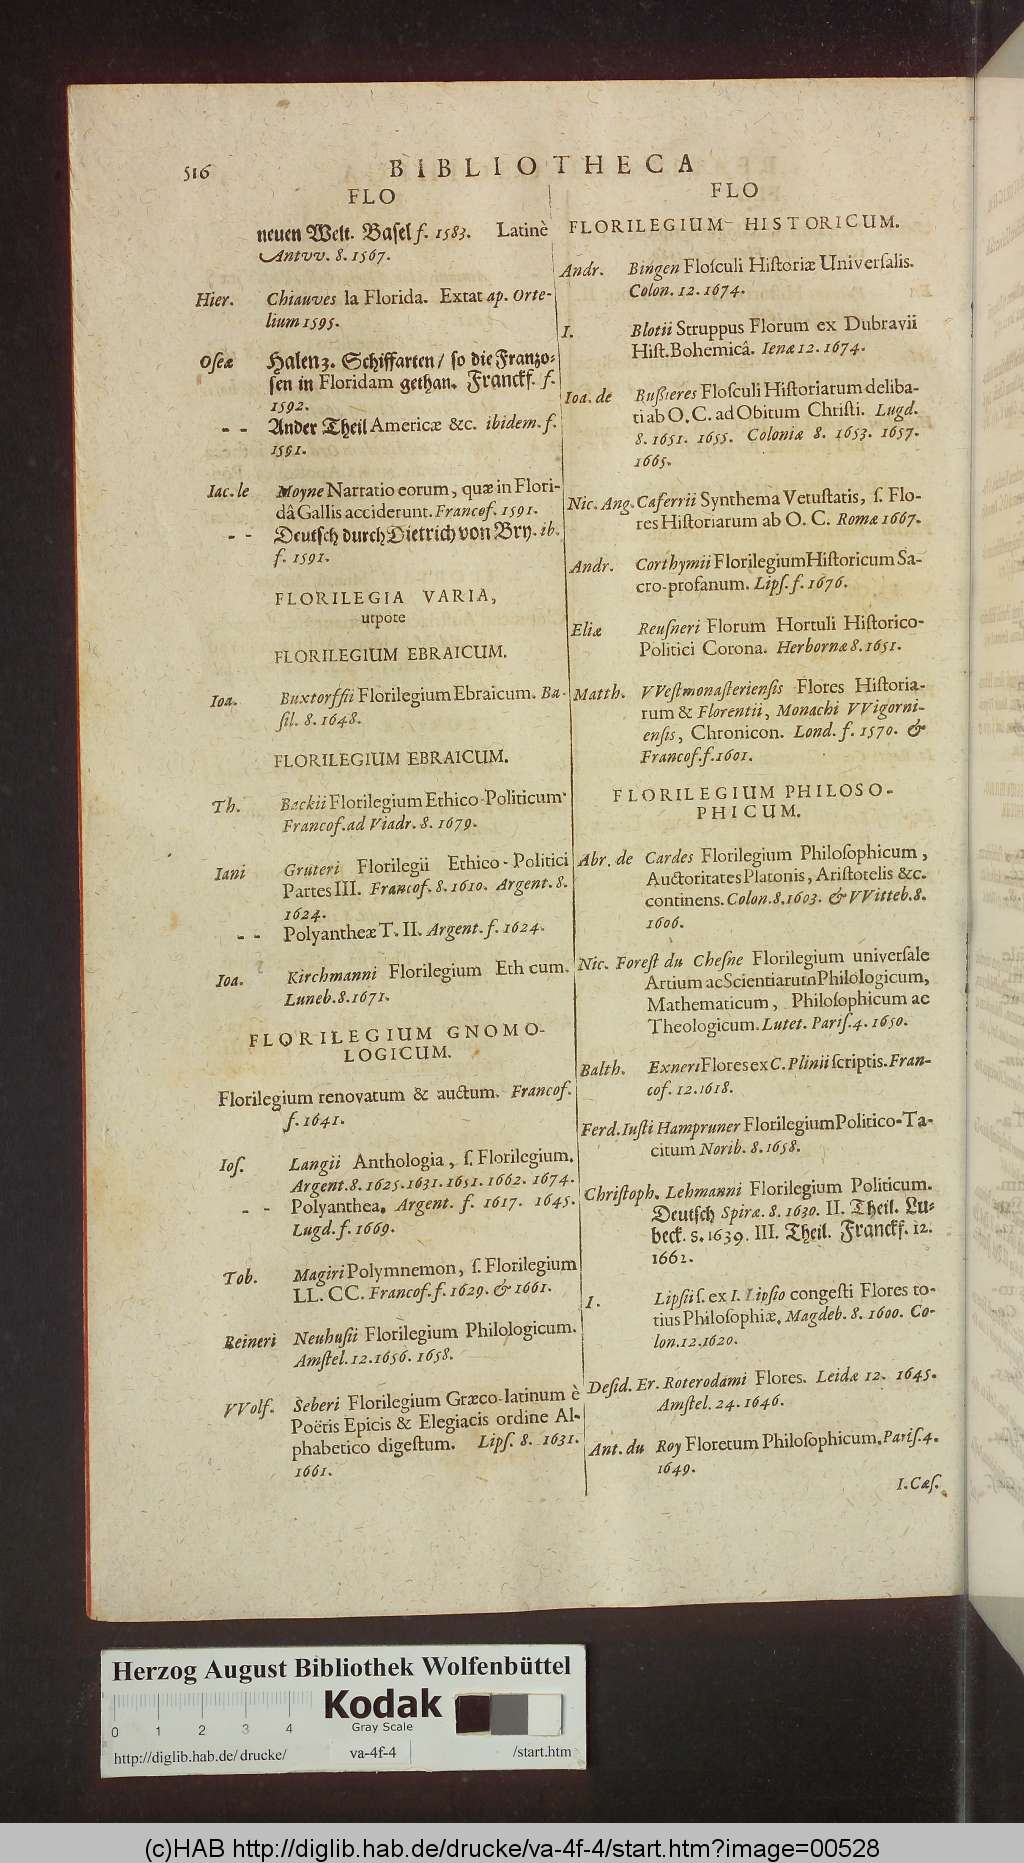 516
BIBLIOTHECA
FLO
neuen Welt. Basel f. 1583. Latinè
Antvv. 8. 1567.
Hier. Chiauves la Florida. Extat ap. Orte-
lium 1595.
Oseæ Halenz. Schiffarten/ so die Franzo-
sen in Floridam gethan. Franckf. f.
1592.
- - Ander Theil Americæ &c. ibidem. f.
1591.
Iac. le Moyne Narratio eorum, quæ in Flori-
dâ Gallis acciderunt. Francof. 1591.
- - Deutsch durch Dietrich von Bry. ib.
f. 1591.
FLORILEGIA VARIA,
utpote
FLORILEGIUM EBRAICUM.
Ioa. Buxtorffii Florilegium Ebraicum. Ba-
sil. 8. 1648.
FLORILEGIUM EBRAICUM.
Th. Backii Florilegium Ethico-Politicum.
Francof. ad Viadr. 8. 1679.
Iani Gruteri Florilegii Ethico-Politici
Partes III. Francof. 8. 1610. Argent. 8.
1624.
- - Polyantheæ T. II. Argent. f. 1624.
Ioa. Kirchmanni Florilegium Eth cum.
Luneb. 8. 1671.
FLORILEGIUM GNOMO-
LOGICUM.
Florilegium renovatum & auctum. Francof.
f. 1641.
Ios. Langii Anthologia, s. Florilegium.
Argent. 8. 1625. 1631. 1651. 1662. 1674.
- - Polyanthea. Argent. f. 1617. 1645.
Lugd. f. 1669.
Tob. Magiri Polymnemon, s. Florilegium
LL. CC. Francof. f. 1629. & 1661.
Reineri Neuhusii Florilegium Philologicum.
Amstel. 12. 1656. 1658.
VVolf. Seberi Florilegium Græco-latinum è
Poëtis Epicis & Elegiacis ordine Al-
phabetico digestum. Lips. 8. 1631.
1661.
FLO
FLORILEGIUM HISTORICUM.
Andr. Bingen Flosculi Historiæ Universalis.
Colon. 12. 1674.
I. Blotii Struppus Florum ex Dubravii
Hist. Bohemicâ. Ienæ 12. 1674.
Ioa. de Bußieres Flosculi Historiarum deliba-
ti ab O. C. ad Obitum Christi. Lugd.
8. 1651. 1655. Coloniæ 8. 1653. 1657.
1665.
Nic. Ang. Caferrii Synthema Vetustatis, s. Flo-
res Historiarum ab O. C. Romæ 1667.
Andr. Corthymii Florilegium Historicum Sa-
cro-profanum. Lips. f. 1676.
Eliæ Reusneri Florum Hortuli Historico-
Politici Corona. Herbornæ 8. 1651.
Matth. VVestmonasteriensis Flores Historia-
rum & Florentii, Monachi VVigorni-
ensis, Chronicon. Lond. f. 1570. &
Francof. f. 1601.
FLORILEGIUM PHILOSO-
PHICUM.
Abr. de Cardes Florilegium Philosophicum,
Auctoritates Platonis, Aristotelis &c.
continens. Colon. 8. 1603. & VVitteb. 8.
1606.
Nic. Forest du Chesne Florilegium universale
Artium ac Scientiarum Philologicum,
Mathematicum, Philosophicum ac
Theologicum. Lutet. Paris. 4. 1650.
Balth. Exneri Flores ex C. Plinii scriptis. Fran-
cof. 12. 1618.
Ferd. Iusti Hampruner Florilegium Politico-Ta-
citum Norib. 8. 1658.
Christoph. Lehmanni Florilegium Politicum.
Deutsch Spiræ. 8. 1630. II. Theil. Lu-
beck. s. 1639. III. Theil. Franckf. 12.
1662.
I. Lipsii s. ex I. Lipsio congesti Flores to-
tius Philosophiæ. Magdeb. 8. 1600. Co-
lon. 12. 1620.
Desid. Er. Roterodami Flores. Leidæ 12. 1645.
Amstel. 24. 1646.
Ant. du Roy Floretum Philosophicum. Paris. 4.
1649.
I. Cæs.
Herzog August Bibliothek Wolfenbüttel
Kodak
Gray Scale
0 1 2 3 4
http://diglib.hab.de/drucke/ va-4f-4 /start.htm
(c)HAB http://diglib.hab.de/drucke/va-4f-4/start.htm?image=00528